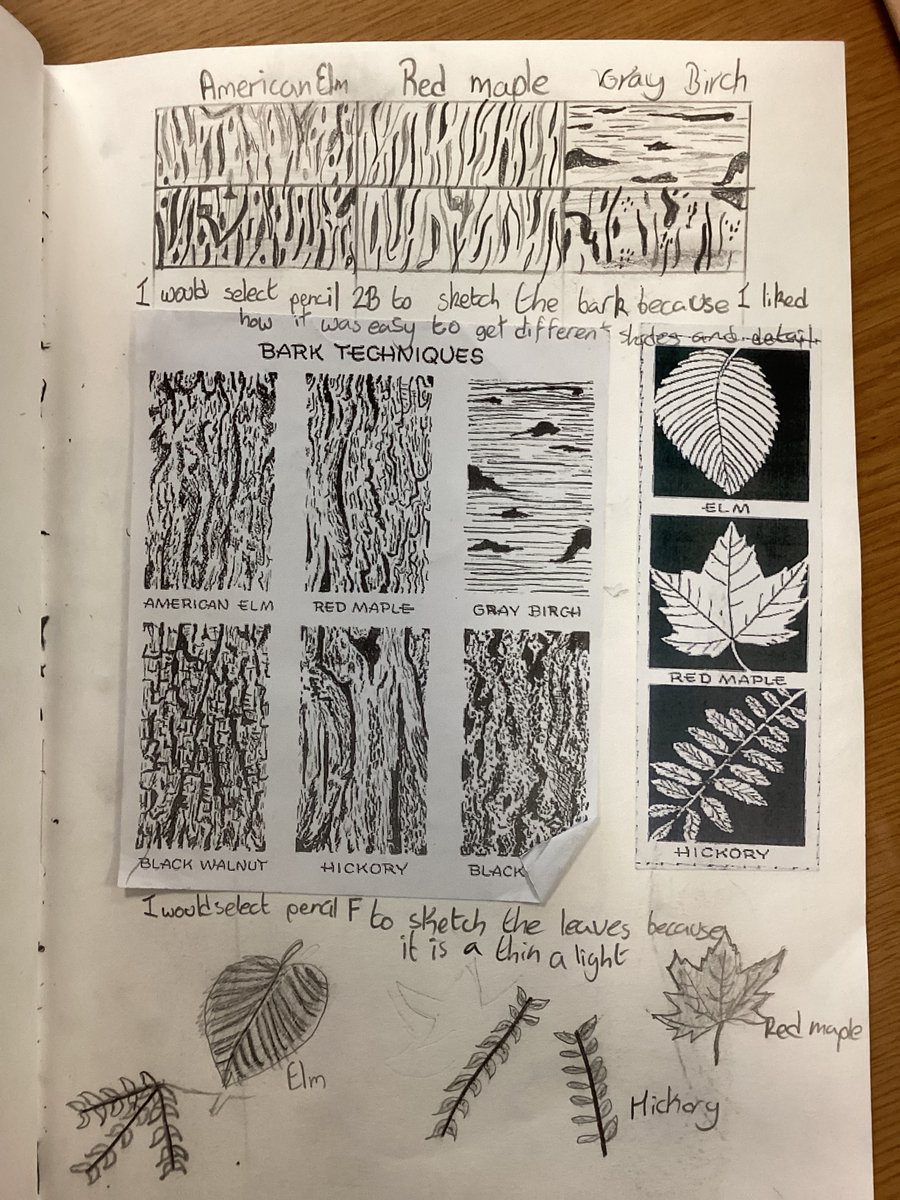 American Elm Red maple Gray Birch
I would select pencil 2B to sketch the bark because I liked
how it was easy to get different shades and detail.
BARK TECHNIQUES
AMERICAN ELM RED MAPLE GRAY BIRCH
BLACK WALNUT HICKORY BLACK
ELM
RED MAPLE
HICKORY
I would select pencil F to sketch the leaves because
it is a thin a light
Elm
Red maple
Hickory